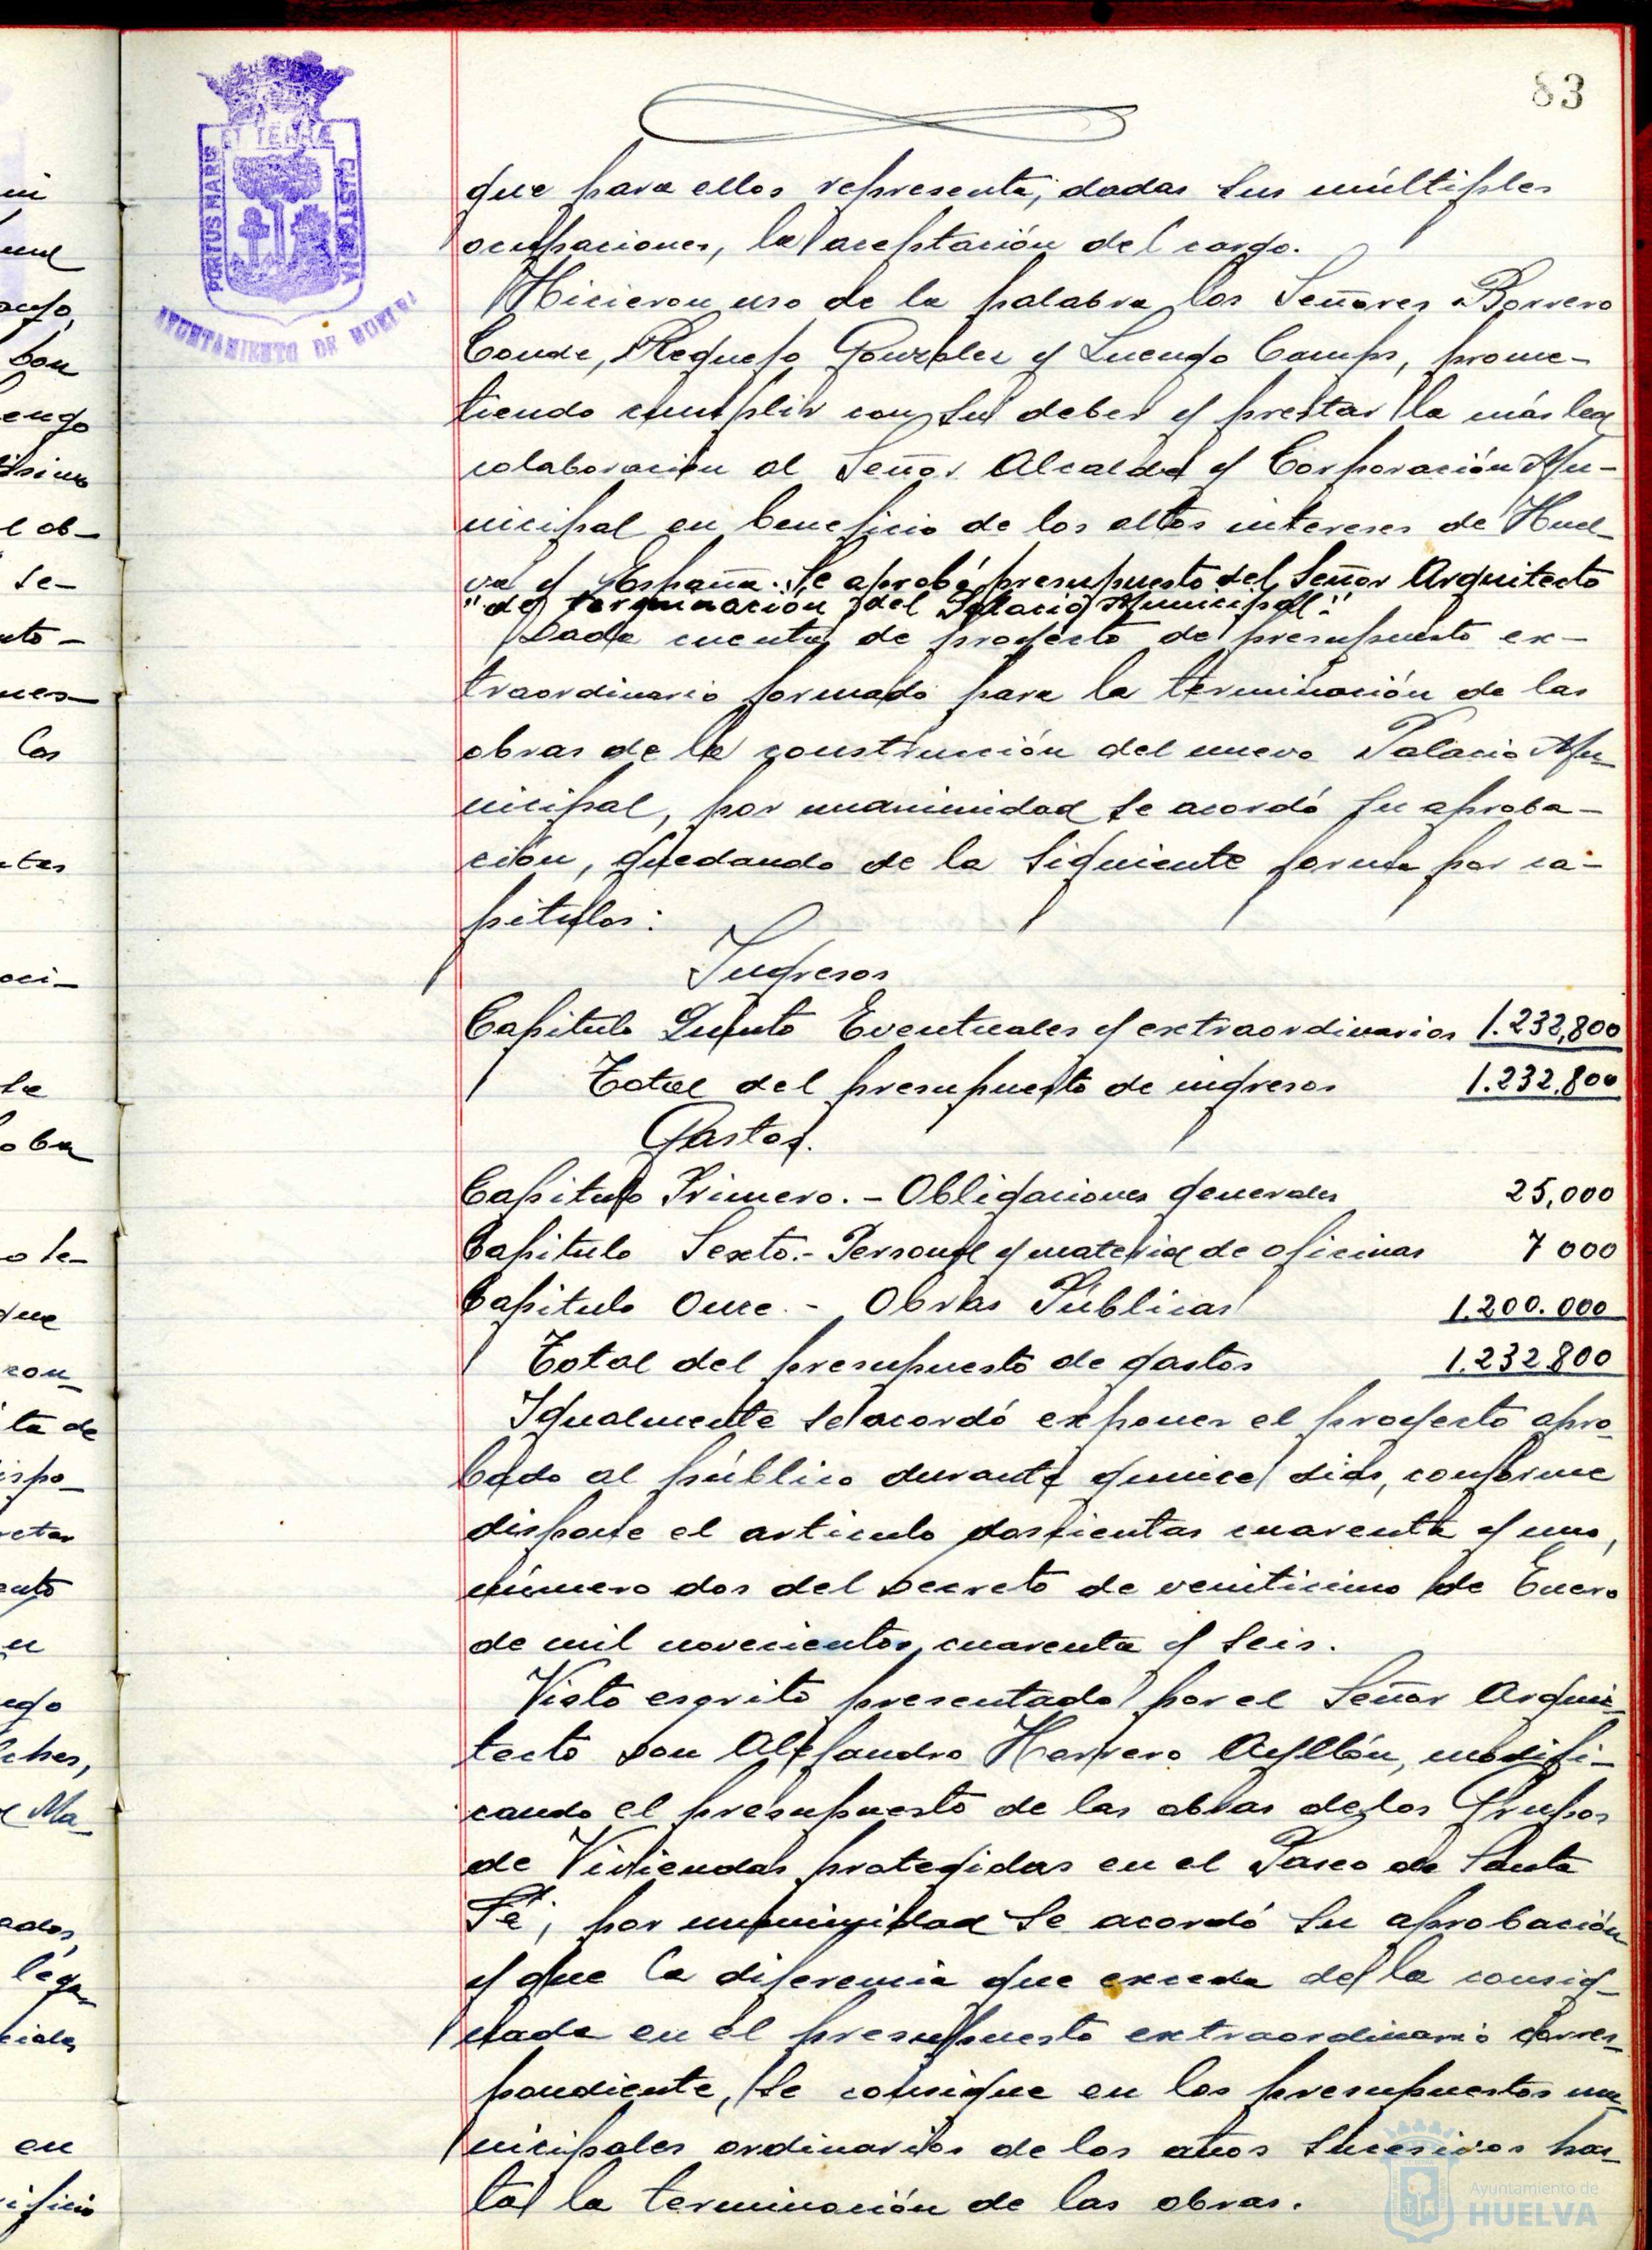 83
PORTUS MARIS ET TERRÆ CUSTODIA
AYUNTAMIENTO DE HUELVA
que para ellos representa, dadas sus múltiples
ocupaciones, la aceptación del cargo.
Hicieron uso de la palabra los Señores Borrero
Conde, Requejo Gonzalez y Luengo Camps, prome-
tiendo cumplir con su deber y prestar la más leal
colaboración al Señor Alcalde y Corporación Mu-
nicipal en beneficio de los altos intereses de Huel-
va y España. Se aprobó presupuesto del Señor Arquitecto
"de terminación del Palacio Municipal."
Dada cuenta de proyecto de presupuesto ex-
traordinario formado para la terminación de las
obras de la construcción del nuevo Palacio Mu-
nicipal, por unanimidad se acordó su aproba-
ción, quedando de la siguiente forma por ca-
pitulos:
Ingresos
Capitulo Quinto Eventuales y extraordinarios 1.232,800
Total del presupuesto de ingresos 1.232.800
Gastos.
Capitulo Primero. - Obligaciones generales 25,000
Capitulo Sexto.- Personal y material de oficinas 7 000
Capitulo Once. - Obras Públicas 1.200.000
Total del presupuesto de gastos 1.232.800
Igualmente se acordó exponer el proyecto apro-
bado al público durante quince dias, conforme
dispone el articulo doscientas cuarenta y uno,
número dos del Decreto de venticinco de Enero
de mil novecientos cuarenta y seis.
Visto escrito presentado por el Señor Arqui-
tecto Don Alejandro Herrero Ayllón, modifi-
cando el presupuesto de las obras de los Grupos
de Viviendas protegidas en el Paseo de Santa
Fé, por unanimidad se acordó su aprobación
y que la diferencia que exceda de la consig-
nada en el presupuesto extraordinario corres-
pondiente, se consigue en los presupuestos mu-
nicipales ordinarios de los años sucesivos has-
ta la terminación de las obras.
Ayuntamiento de
HUELVA